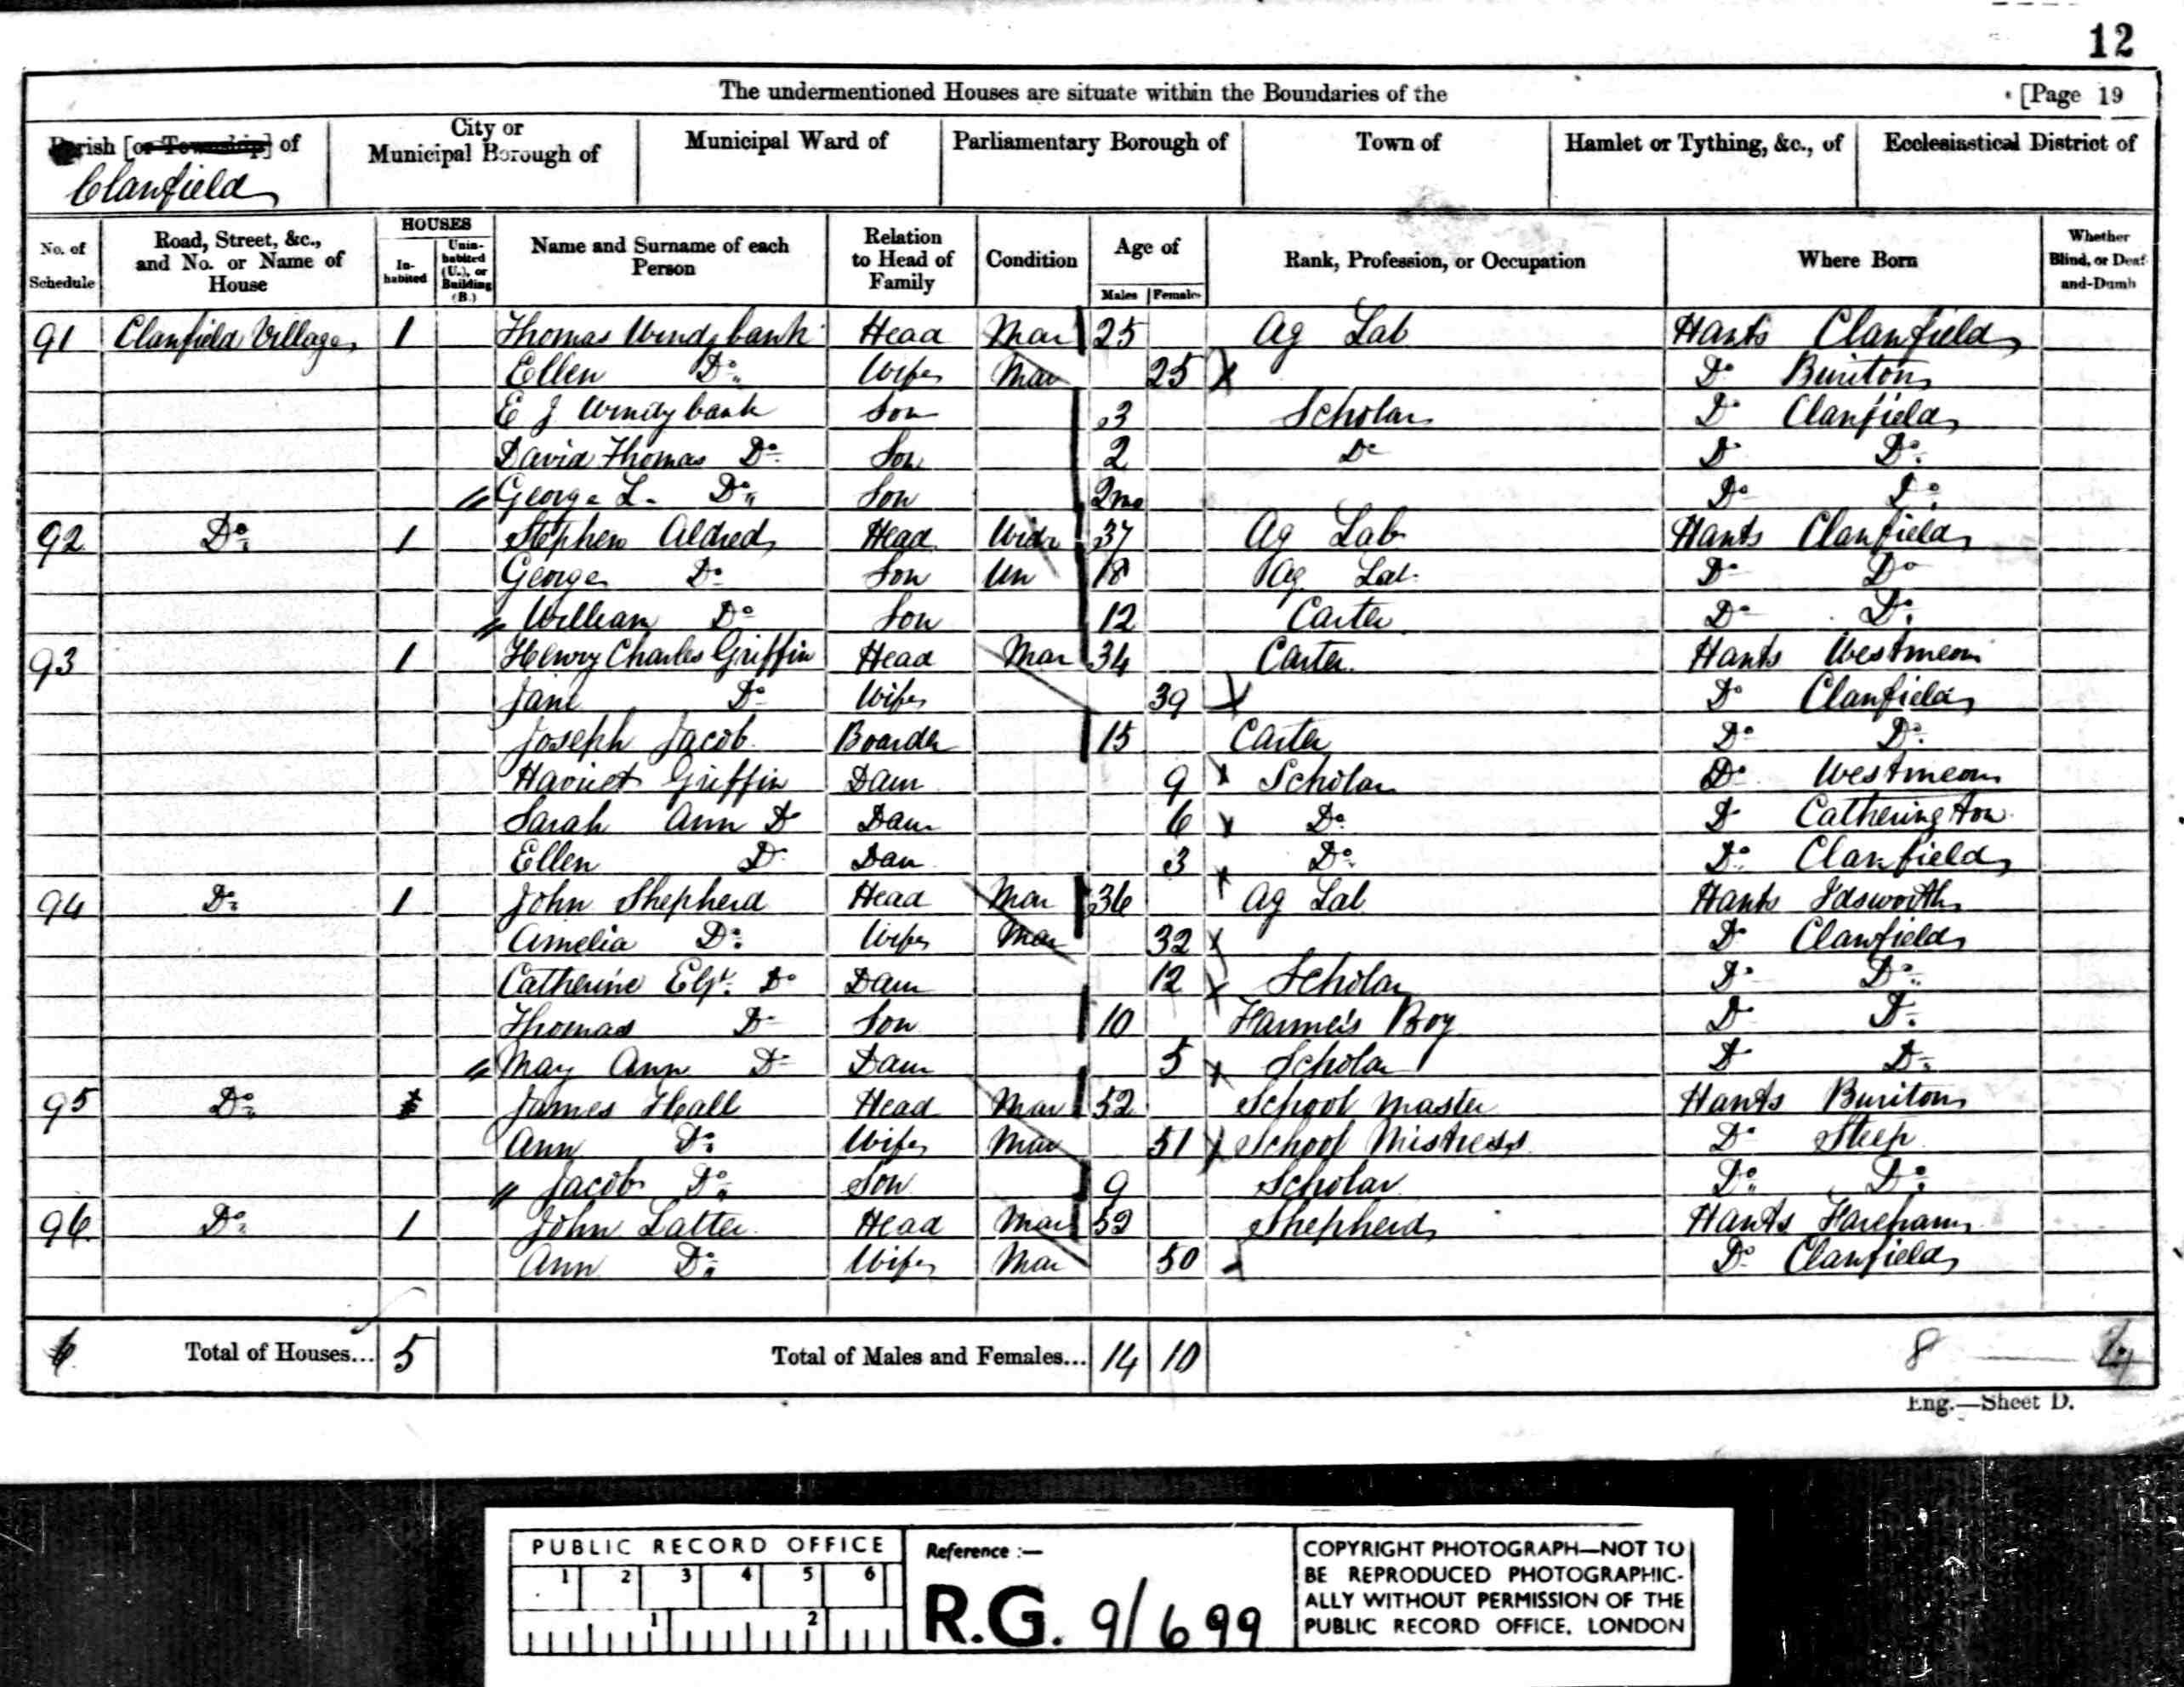 12
The undermentioned Houses are situate within the Boundaries of the [Page 19
Parish [or Township] of City or Municipal Borough of Municipal Ward of Parliamentary Borough of Town of Hamlet or Tything, &c., of Ecclesiastical District of
Clanfield
No. of Schedule Road, Street, &c., and No. or Name of House HOUSES Inhabited Uninhabited (U.), or Building (B.) Name and Surname of each Person Relation to Head of Family Condition Age of Males Females Rank, Profession, or Occupation Where Born Whether Blind, or Deaf-and-Dumb
91 Clanfield Village 1 Thomas Windybank Head Mar 25 Ag Lab Hants Clanfield
Ellen Do Wife Mar 25 Do Buriton
E J Windybank Son 3 Scholar Do Clanfield
David Thomas Do Son 2 Do Do Do
George L. Do Son 2mo Do Do
92 Do 1 Stephen Aldred Head Widr 37 Ag Lab Hants Clanfield
George Do Son Un 18 Ag Lab Do Do
William Do Son 12 Carter Do Do
93 1 Henry Charles Griffin Head Mar 34 Carter Hants Westmeon
Jane Do Wife 39 Do Clanfield
Joseph Jacob Boarder 15 Carter Do Do
Harriet Griffin Daur 9 Scholar Do Westmeon
Sarah Ann Do Daur 6 Do Do Catherington
Ellen Do Daur 3 Do Do Clanfield
94 Do 1 John Shepherd Head Mar 36 Ag Lab Hants Idsworth
Amelia Do Wife Mar 32 Do Clanfield
Catherine Elizt. Do Daur 12 Scholar Do Do
Thomas Do Son 10 Farmer's Boy Do Do
Mary Ann Do Daur 5 Scholar Do Do
95 Do 1 James Heall Head Mar 52 School Master Hants Buriton
Ann Do Wife Mar 51 School Mistress Do Steep
Jacob Do Son 9 Scholar Do Do
96 Do 1 John Latter Head Mar 52 Shepherd Hants Fareham
Ann Do Wife Mar 50 Do Clanfield
6 Total of Houses... 5 Total of Males and Females... 14 10 8
Eng.—Sheet D.
PUBLIC RECORD OFFICE
1 2 3 4 5 6
1 2
Reference :—
R.G. 9/699
COPYRIGHT PHOTOGRAPH—NOT TO
BE REPRODUCED PHOTOGRAPHIC-
ALLY WITHOUT PERMISSION OF THE
PUBLIC RECORD OFFICE, LONDON